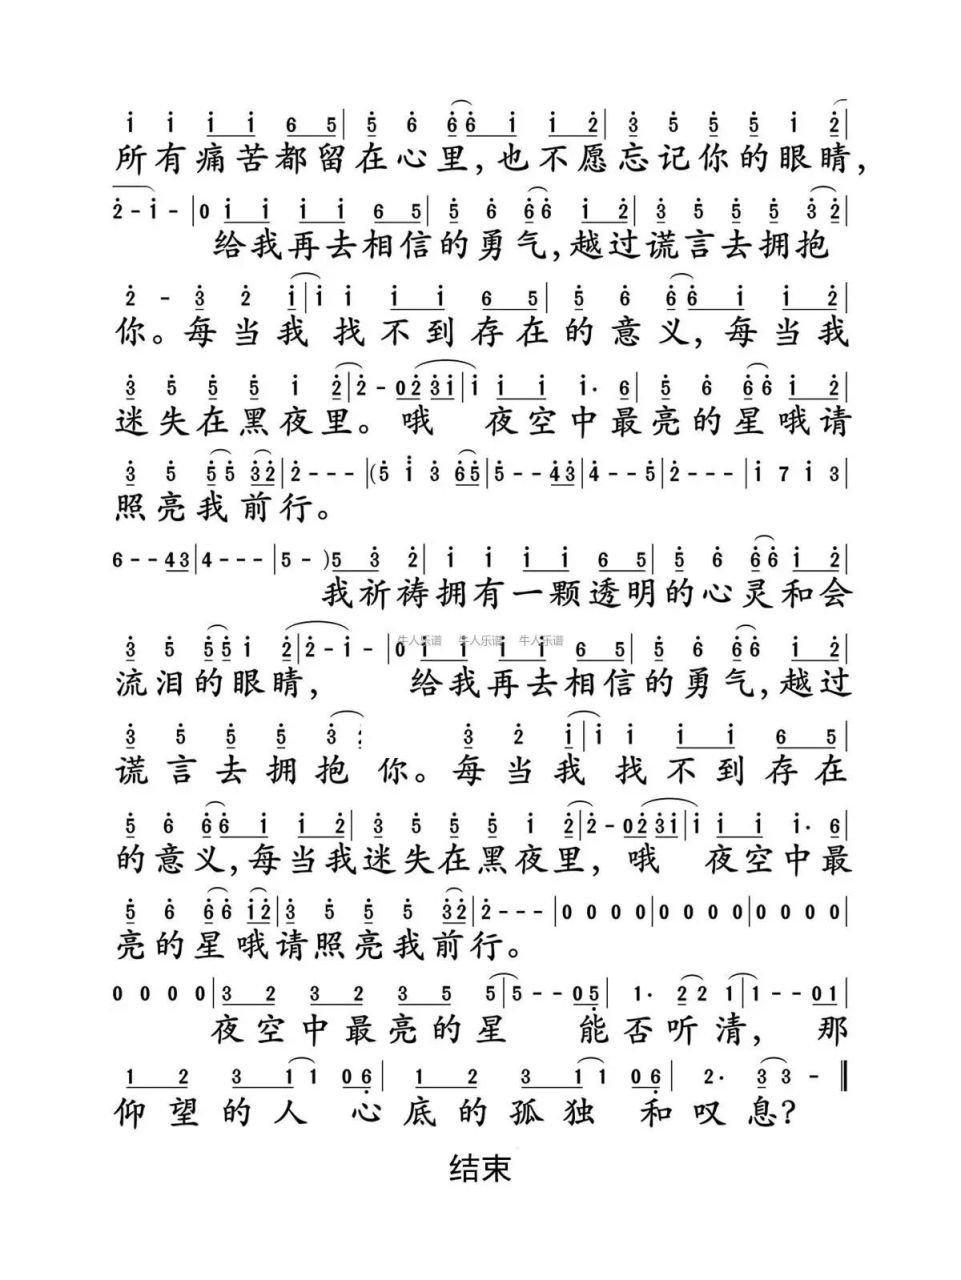 i i i i 6 5| 5 6 6 6 i i 2| 3 5 5 5 i 2|
所有痛苦都留在心里,也不愿忘记你的眼睛,
2 - i - |0 i i i i 6 5| 5 6 6 6 i 2| 3 5 5 5 3 2|
给我再去相信的勇气,越过谎言去拥抱
2 - 3 2 i| i i i i 6 5| 5 6 6 6 i i 2|
你。每当我 找不到存在的意义,每当我
3 5 5 5 i 2|2 - 0 2 3 i| i i i i· 6| 5 6 6 6 i 2|
迷失在黑夜里。哦 夜空中最亮的星哦请
3 5 5 5 3 2|2 - - - |(5 i 3 6 5|5 - - 4 3|4 - - 5|2 - - - |i 7 i 3|
照亮我前行。
6 - - 4 3|4 - - - |5 - )5 3 2| i i i i 6 5| 5 6 6 6 i 2|
我祈祷拥有一颗透明的心灵和会
牛人乐谱 牛人乐谱 牛人乐谱
3 5 5 5 i 2|2 - i - |0 i i i i 6 5| 5 6 6 6 i 2|
流泪的眼睛, 给我再去相信的勇气,越过
3 5 5 5 3 3 2 i| i i i i 6 5|
谎言去拥抱 你。每当我 找不到存在
5 6 6 6 i i 2| 3 5 5 5 i 2|2 - 0 2 3 i| i i i i· 6|
的意义,每当我迷失在黑夜里, 哦 夜空中最
5 6 6 6 i 2|3 5 5 5 3 2|2 - - - |0 0 0 0|0 0 0 0|0 0 0 0|
亮的星哦请照亮我前行。
0 0 0 0|3 2 3 2 3 5 5|5 - - 0 5| 1· 2 2 1|1 - - 0 1|
夜空中最亮的星 能否听清, 那
1 2 3 1 1 0 6| 1 2 3 1 1 0 6| 2· 3 3 - ‖
仰望的人 心底的孤独 和叹息?
结束